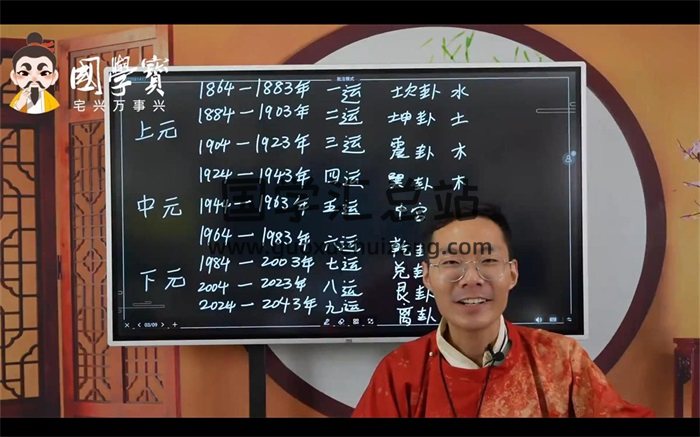 國學寶
宅兴万事兴
批注模式
1864-1883年 一运 坎卦 水
1884-1903年 二运 坤卦 土
上元
1904-1923年 三运 震卦 木
1924-1943年 四运 巽卦 木
中元
1944-1963年 五运 中宫
国学汇总站
1964-1983年 六运 乾卦
1984-2003年 七运 兑卦
下元
2004-2023年 八运 艮卦
2024-2043年 九运 离卦
03/09